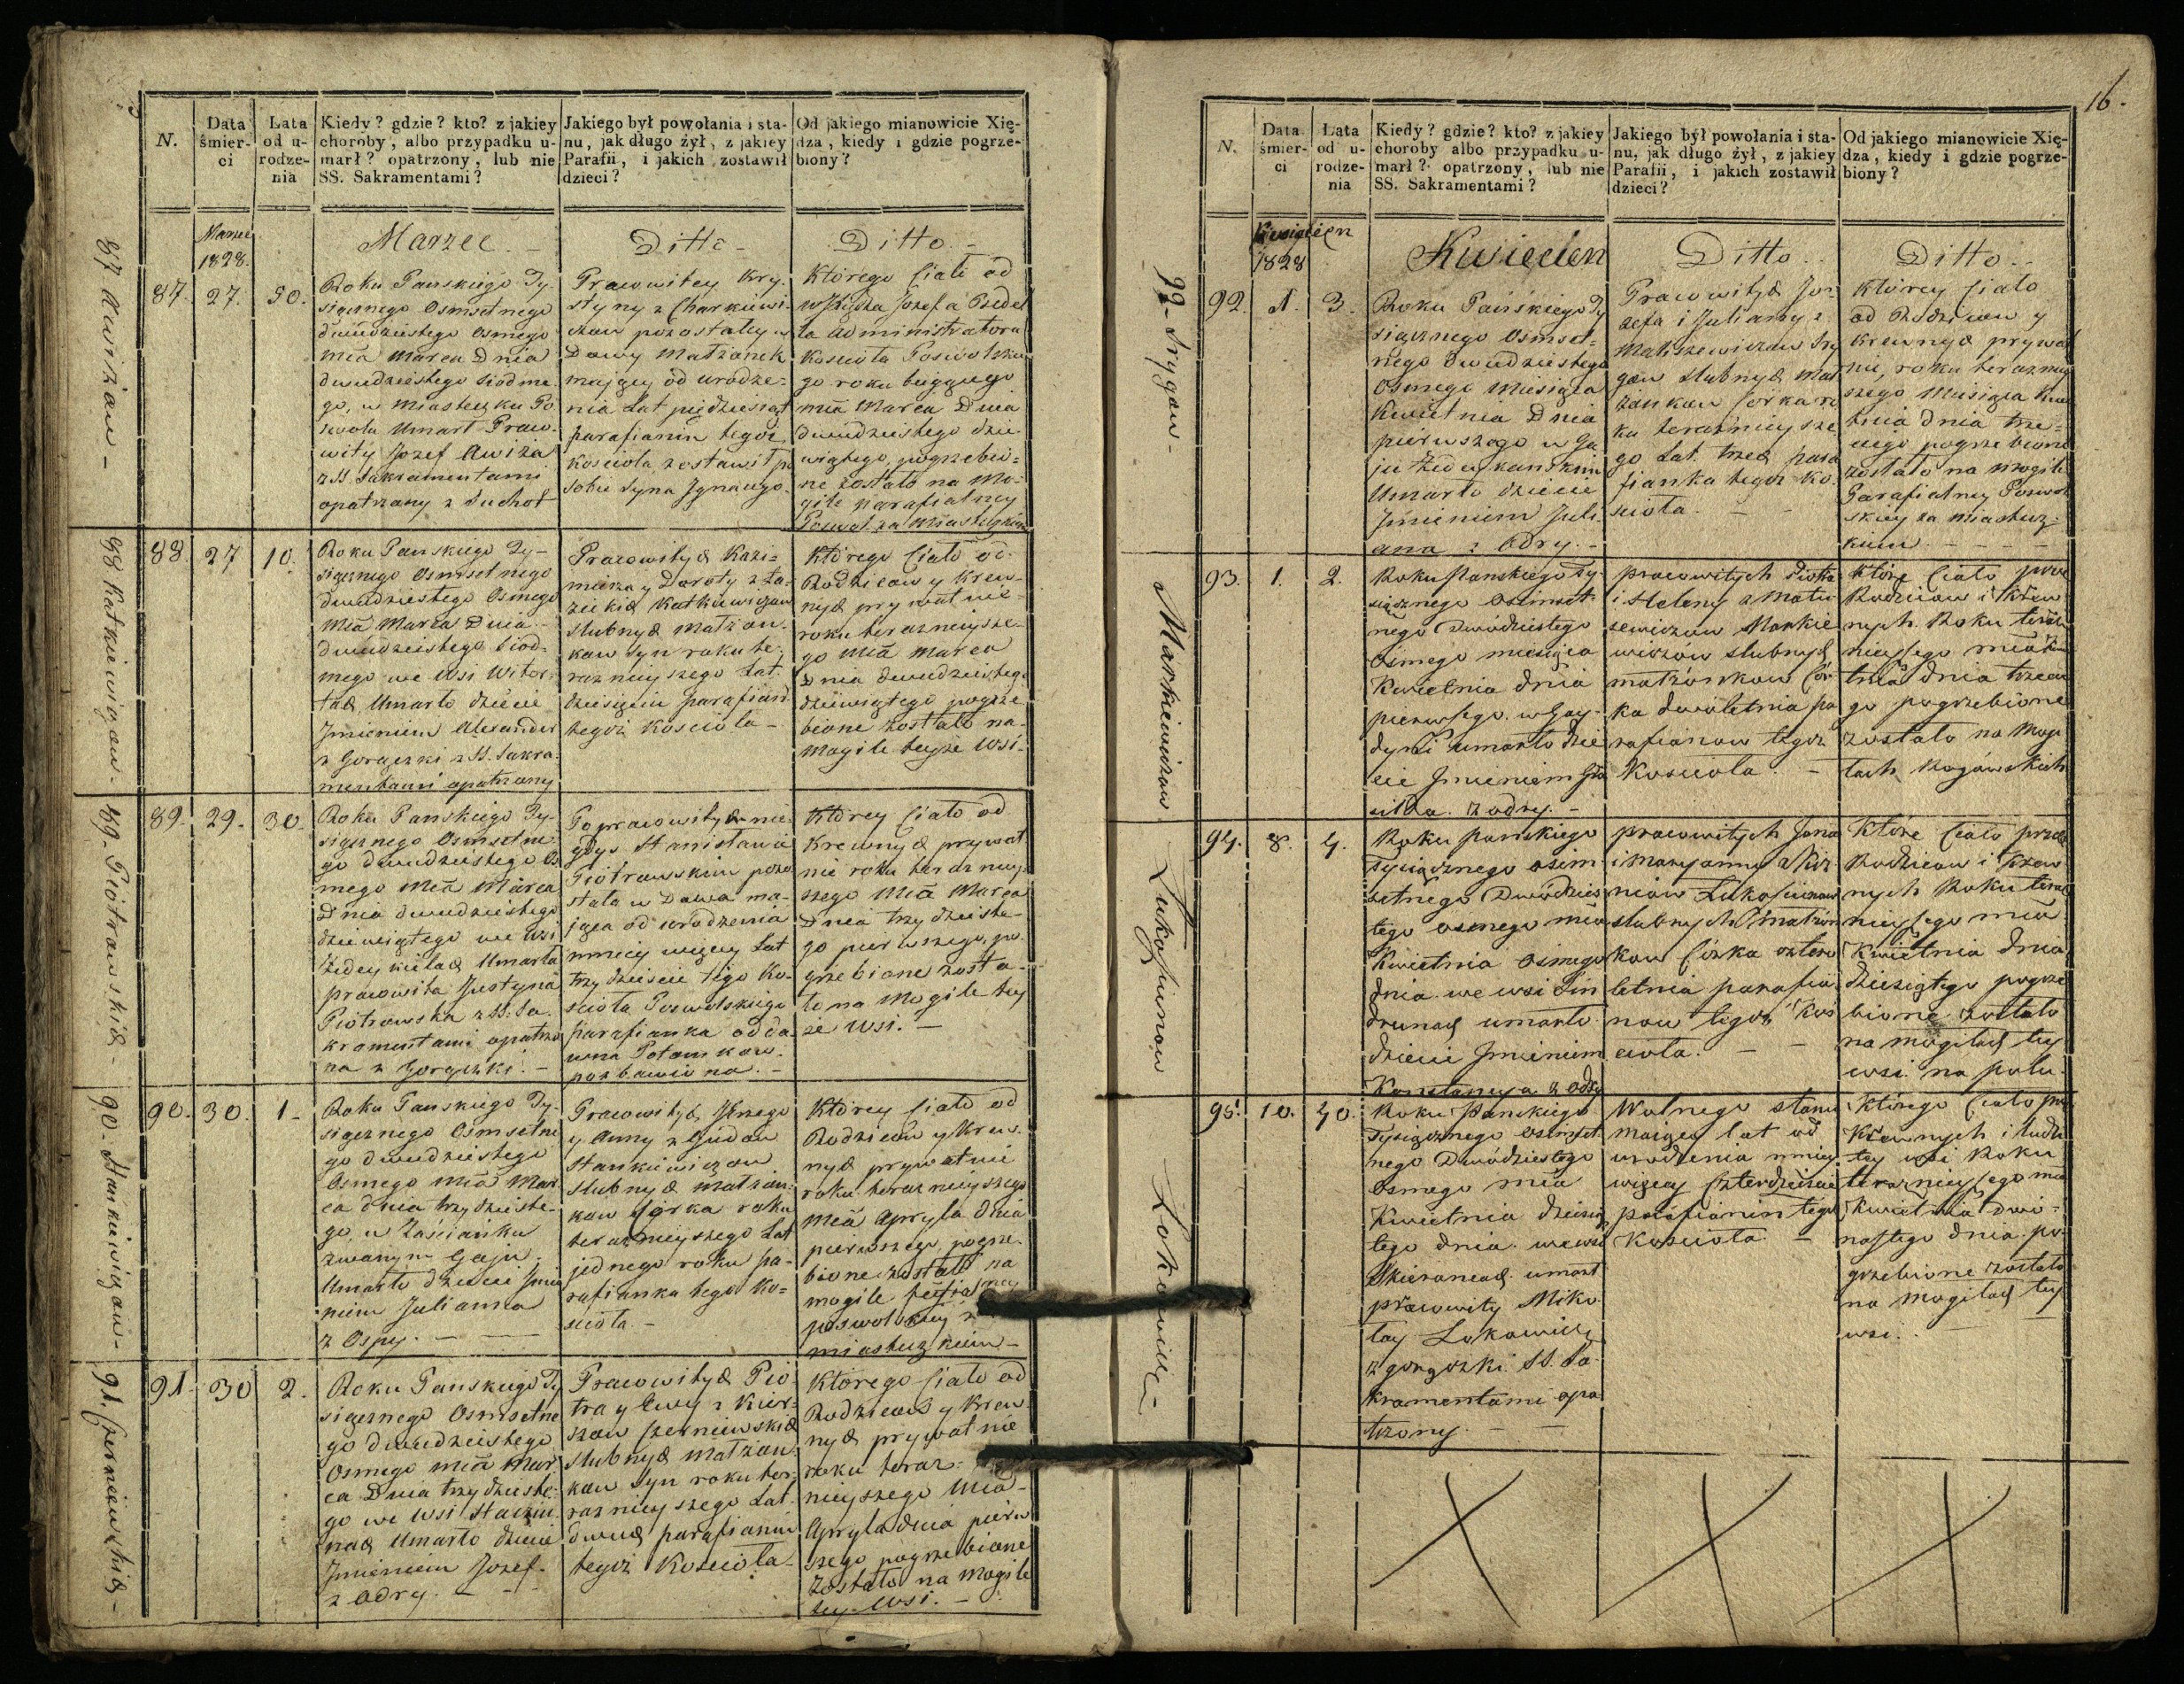 N.
Data śmier-ci
Lata od u-rodze-nia
Kiedy? gdzie? kto? z jakiey
choroby, albo przypadku u-
marł? opatrzony, lub nie
SS. Sakramentami?
Jakiego był powołania i sta-
nu, jak długo żył, z jakiey
Parafii, i jakich zostawił
dzieci?
Od jakiego mianowicie Xię-
dza, kiedy i gdzie pogrze-
biony?
Marzec
1828.
Marzec. -
Ditto -
Ditto. -
87 Awiżan -
87.
27.
50.
Roku Panskiego Ty-
siącznego Osmsetnego
dwudziestego Osmego
mca Marca Dnia
dwudziestego siodme
go, w Miasteczku Po
swolu Umarł Praco-
wity Jozef Awiża
z SS. Sakramentami
opatrzony z Suchot
Pracowitey Kry-
styny z Charkiewi-
czow pozostałey w
Dowy Małżonek
mający od urodze-
nia Lat pięćdziesiąt
parafianin tegoż
Kosciola, zostawił po
sobie Syna Ignacego.
Ktorego Ciało od
W Xiędza Jozefa
ta Administratora
Kosciola Poswolskie
go roku bieżącego
mca Marca Dnia
dwudziestego dzie
wiątego, pogrzebio-
ne zostało na Mo-
gile parafialney
Poswol. za Miasteczkiem
88 Katkiewiczow -
88.
27
10.
Roku Panskiego Ty-
siącznego Osmsetnego
dwudziestego Osmego
Mca Marca Dnia
dwudziestego siod-
mego we Wsi Witor-
tach Umarło dziecie
Imieniem Alexander
z Gorączki z SS. Sakra-
mentami opatrzony
Pracowitych Kazi-
mierza y Doroty z Ła-
zickich Katkiewiczow
Slubnych Małżon-
kow Syn roku te-
raznieyszego Lat
dziesięciu parafian
tegoż Kosciola -
Ktorego Ciało od
Rodzicow y Krew-
nych prywatnie
roku teraznieysze-
go Mca Marca
Dnia dwudziestego
dziewiątego pogrze
bione zostało na
Mogile teyże Wsi.
89. Piotrowskich -
89.
29.
30.
Roku Panskiego Ty-
siącznego Osmsetne
go dwudziestego Os
mego Mca Marca
Dnia dwudziestego
dziewiątego we Wsi
Żydeykielach Umarła
pracowita Justyna
Piotrowska z SS. Sa-
kramentami opatrzo
na z Gorączki. -
Po pracowitym nie
gdys Stanisławie
Piotrowskim pozo
stała w Dowa ma-
jąca od urodzenia
mniey więcey Lat
trzydziescie tego Ko-
sciola Poswolskiego
parafianka od da-
wna Potomkow
pozbawiona. -
Ktorey Ciało od
Krewnych prywat
nie roku teraznieyt
szego Mca Marca
Dnia trzydzieste-
go pierwszego, po-
grzebione zosta-
ło na Mogile tey
że Wsi. -
90. Stankiewiczow -
90.
30.
1 -
Roku Panskiego Ty-
siącznego Osmsetne
go dwudziestego
Osmego Mca Mar
ca dnia trzydzieste-
go, w Zaścianku
zwanym Gaju
Umarło dziecie Imie
niem Julianna
z Ospy. -
Pracowitych Jerzego
y Anny z Gudow
Stankiewiczow
Slubnych Małżon-
kow Corka roku
teraznieyszego Lat
jednego roku pa-
rafianka tego Ko-
sciola. -
Ktorey Ciało od
Rodzicow y Krew-
nych prywatnie
roku teraznieyszego
Mca Apryla dnia
pierwszego, pogrze
bione zostało na
mogile
poswolskiey
miasteczkiem -
91. Czerniewskich -
91.
30
2.
Roku Panskiego Ty
siącznego Osmsetne
go dwudziestego
Osmego Mca Mar
ca Dnia trzydzieste-
go we Wsi Staciu-
nach Umarło dziecie
Imieniem Jozef
z Odry. -
Pracowitych Pio
tra y Ewy z Kier-
szow Czerniewskich
slubnych Małżon-
kow Syn roku ter
raznieyszego Lat
dwuch parafianin
tegoż Kosciola -
Ktorego Ciało od
Rodzicow y Krew
nych prywatnie
roku teraz-
nieyszego Mca
Apryla dnia pierw
szego pogrzebione
zostało na Mogile
tey Wsi. -
16.
N.
Data śmier-ci
Lata od u-rodze-nia
Kiedy? gdzie? kto? z jakiey
choroby albo przypadku u-
marł? opatrzony, lub nie
SS. Sakramentami?
Jakiego był powołania i sta-
nu, jak długo żył, z jakiey
Parafii, i jakich zostawił
dzieci?
Od jakiego mianowicie Xię-
dza, kiedy i gdzie pogrze-
biony?
Kwiecien
1828
Kwiecien
Ditto.
Ditto. -
92. Srygow -
92.
1.
3.
Roku Pańskiego Ty
siącznego Osmset-
nego dwudziestego
Osmego Miesiąca
Kwietnia Dnia
pierwszego w Ga
ju
Umarło dziecie
Imieniem Juli-
ana z Odry. -
Pracowitych Jo-
zefa i Julianny z
Matuszewiczow Sry
gow slubnych Mał
żonkow Corka ro
ku teraznieysze
go Lat trzech para
fianka tegoż Ko-
sciola. -
Ktorey Ciało
od Rodzicow y
Krewnych prywat
nie, roku teraznieyt
szego Miesiąca Kwie
tnia dnia trze-
ciego pogrzebione
zostało na Mogile
Parafialney Poswol
skiey za Miastecz-
kiem. -
Markiewiczow
93.
1.
2.
Roku Panskiego Ty-
siącznego Osimset-
nego Dwódziestego
Osmego miesiąca
Kwietnia dnia
pierwszego. w Gay-
dyni umarło dzie
cie Imieniem
z odry. -
pracowitych Piotra
i Heleny z Matu-
szewiczow Markie
wiczów slubnych
małżonkow Cór-
ka dwóletnia pa
rafianow tegoż
Kosciola. -
Które Ciało przez
Rodzicow i Krew
nych. Roku teraz
nieyszego mca Kwie
tnia dnia trzecie
go pogrzebione
zostało na Mogi
łach Rogowskich
Łukoszunow
94.
8.
4.
Roku panskiego
Tysiącznego osim
setnego Dwódzies
tego osmego mca
Kwietnia Osmego
dnia. we wsi Sin
drunach umarło
dziecie Imieniem
Konstancya z odry
pracowitych Jana
i Maryanny z
niow Łukoszunow
slubnych małżon
kow Córka cztero
letnia parafia
now tegoż Kos
ciola. -
Które Ciało przez
Rodzicow i Krew
nych Roku teraz
nieyszego mca
Kwietnia dnia
dziesiątego pogrze
bione zostało
na mogiłach tey
wsi na polu.
Łokowicz -
95.
10.
40.
Roku Panskiego
Tysiącznego osimset
nego Dwódziestego
osmego mca
Kwietnia dziesią
tego dnia. we wsi
Skieraneach. umarł
pracowity Miko
łay Łokowicz
z gorączki. SS. Sa-
kramentami opa
trzony. -
Wolnego stanu
maiący lat od
urodzenia mniey
więcey Czterdziescie
parafianin tego
Kosciola. -
Którego Ciało przez
Krewnych i ludzi
tey wsi Roku
teraznieyszego mca
Kwietnia dwó-
nastego dnia. po-
grzebione zostało
na Mogiłach tey
wsi. -